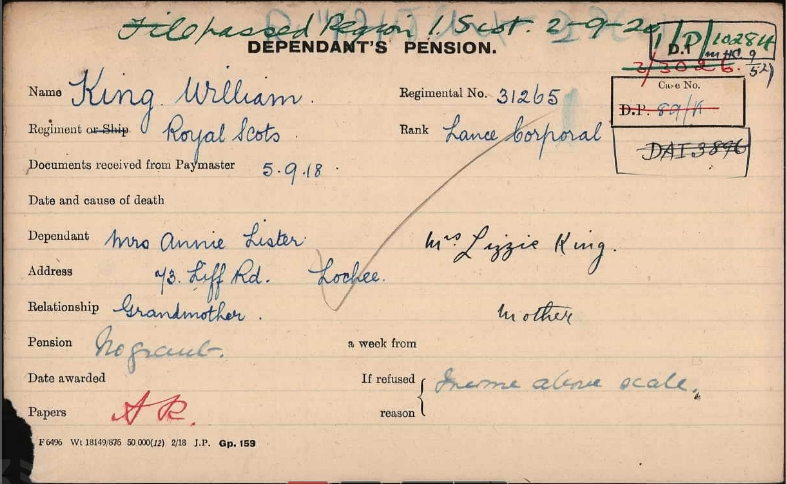 File passed Region 1. Scot. 2-9-20
1/D.P/10284
DEPENDANT'S PENSION.
2/3026.
Name King William.
Regimental No. 31265
Case No.
D.P. 89/K
Regiment or Ship Royal Scots
Rank Lance Corporal
DAI3896
Documents received from Paymaster 5.9.18.
Date and cause of death
Dependant Mrs Annie Lister
Mrs Lizzie King.
Address 73. Liff Rd. Lochee.
Relationship Grandmother.
Mother
Pension No grant.
a week from
Date awarded
If refused reason { Income above scale.
Papers A R.
F6496 Wt 18149/876 50,000(12) 2/18 J.P. Gp. 159